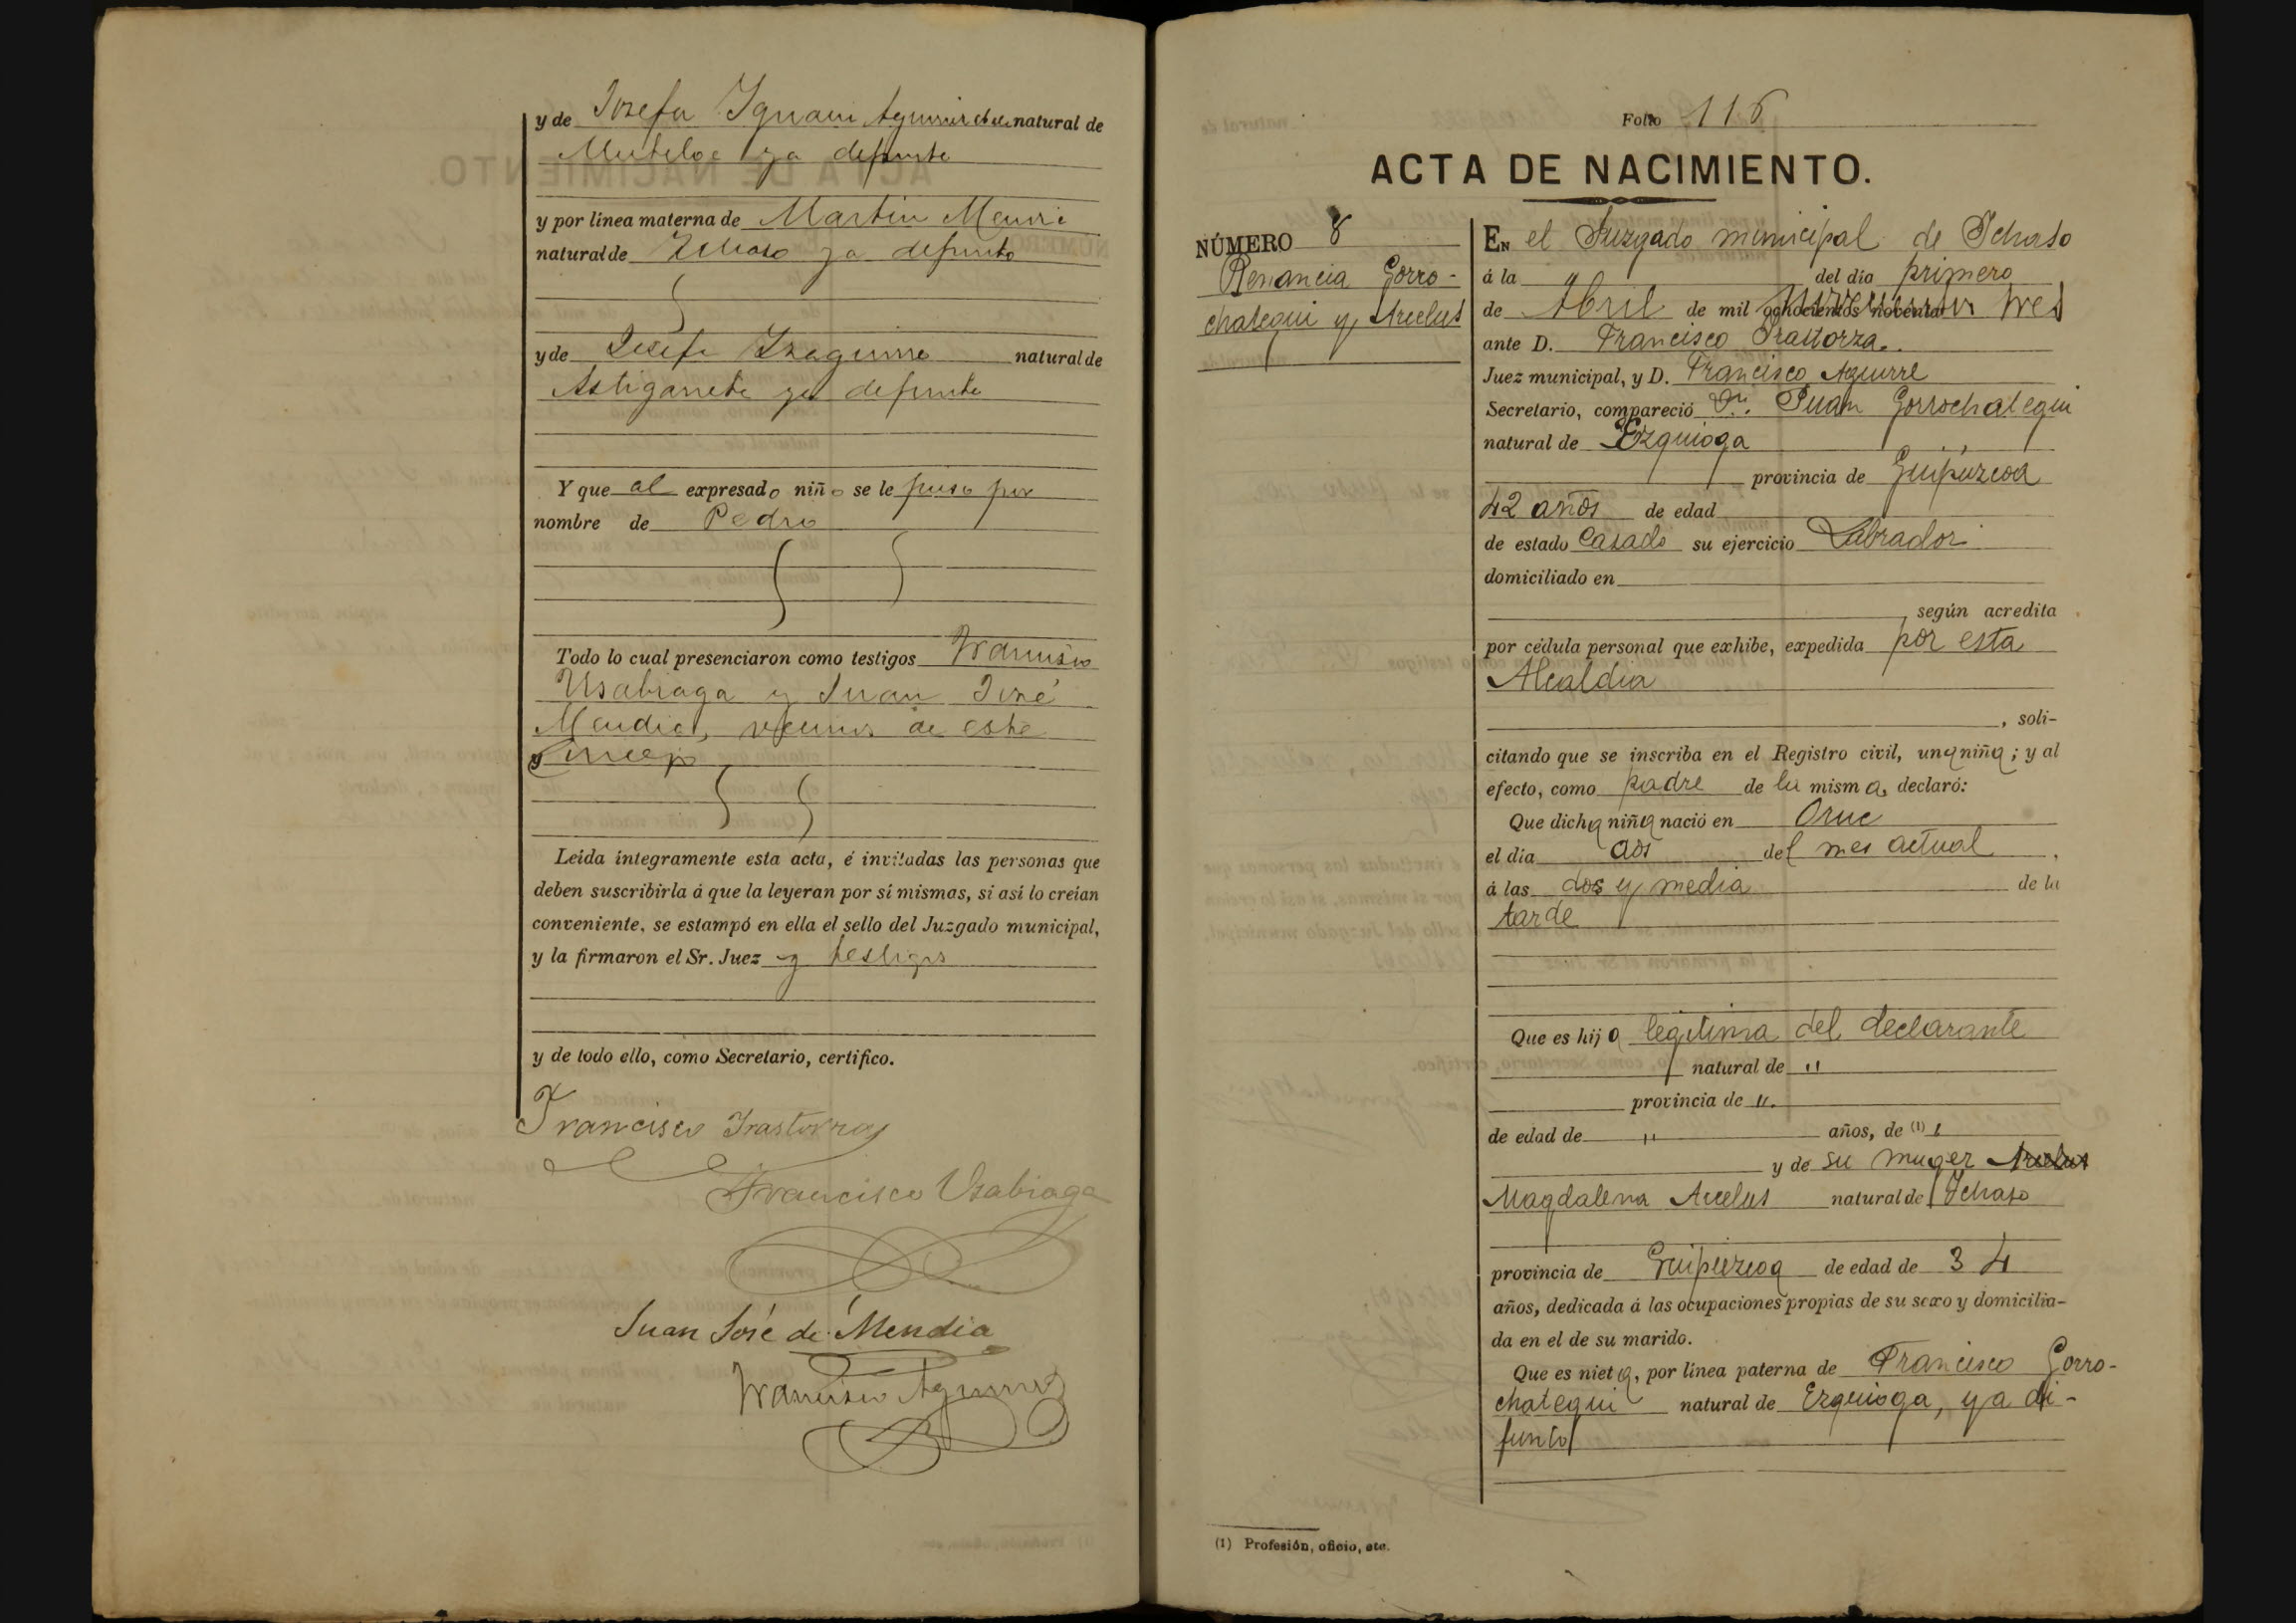 y de Josefa Ignacia Aguirre natural de
Mutiloa ya difunta
y por línea materna de Martin Mendi
natural de Ichaso ya defunto
y de Josefa Izaguirre natural de
Astigarreta ya defunta
Y que al expresado niño se le puso por
nombre de Pedro
Todo lo cual presenciaron como testigos Francisco
Usabiaga y Juan José
Mendia, vecinos de este
Concejo
Leída íntegramente esta acta, é invitadas las personas que
deben suscribirla á que la leyeran por sí mismas, si así lo creían
conveniente, se estampó en ella el sello del Juzgado municipal,
y la firmaron el Sr. Juez y testigos
y de todo ello, como Secretario, certifico.
Francisco Irastorza
Francisco Usabiaga
Juan José de Mendia
Francisco Aguirre
Folio 116
ACTA DE NACIMIENTO.
NÚMERO 8
Venancia Gorro-
chategui y Arcelus
En el Juzgado municipal de Ichaso
á la " del día primero
de Abril de mil ochocientos noventa tres
ante D. Francisco Irastorza.
Juez municipal, y D. Francisco Aguirre
Secretario, compareció Dn. Juan Gorrochategui
natural de Ezquioga
provincia de Guipúzcoa
42 años de edad
de estado Casado su ejercicio Labrador
domiciliado en
según acredita
por cédula personal que exhibe, expedida por esta
Alcaldia
, soli-
citando que se inscriba en el Registro civil, una niña; y al
efecto, como padre de la misma, declaró:
Que dicha niña nació en Oruc
el día dos del mes actual,
á las dos y media de la
tarde
Que es hija legitima del declarante
natural de "
provincia de ".
de edad de " años, de (1) "
y de su muger Arcelus
Magdalena Arcelus natural de Ichaso
provincia de Guipúzcoa de edad de 34
años, dedicada á las ocupaciones propias de su sexo y domicilia-
da en el de su marido.
Que es nieta, por línea paterna de Francisco Gorro-
chategui natural de Ezquioga, ya di-
funto
(1) Profesión, oficio, etc.